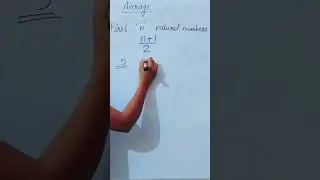 Average
First 'n' natural numbers
n+1
2
5